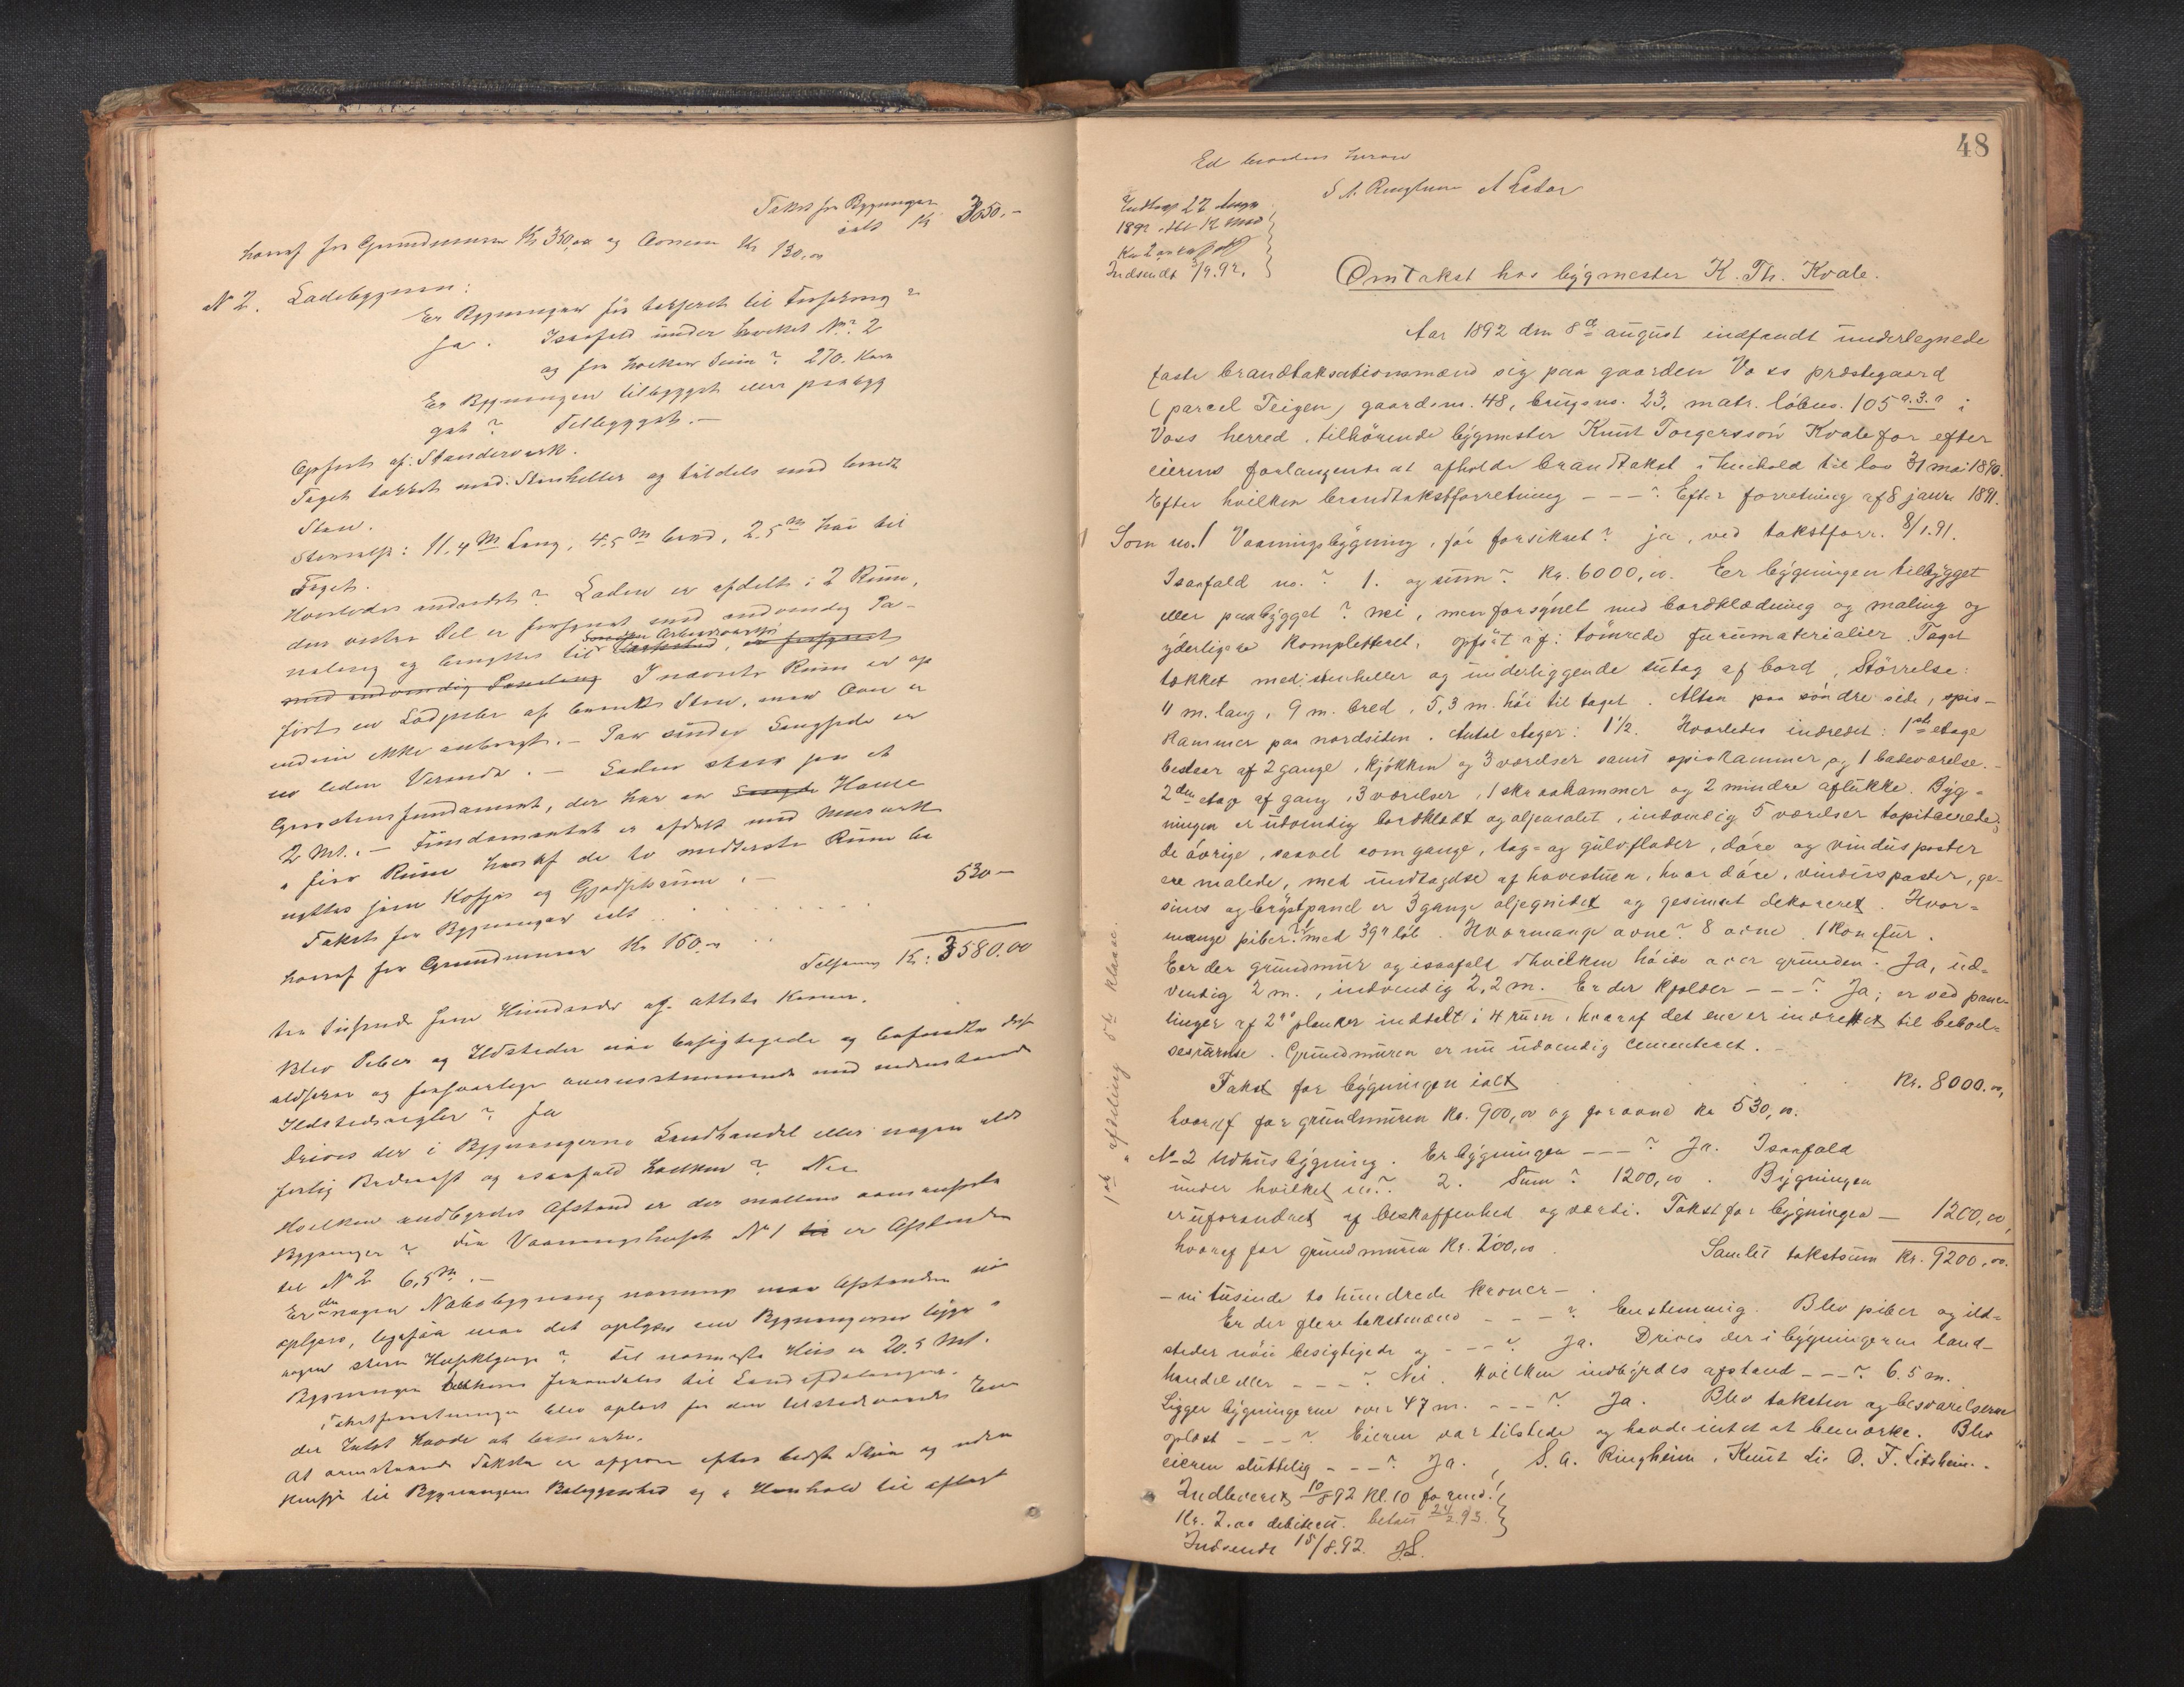 Takst for Bygningen
ialt Kr 3050.-
hvoraf for Grundmuren Kr 350,00 og Ovnene Kr 130,00
No 2. Ladebygning:
Er Bygningen før taxeret til Forsikring?
Ja. Isaafald under hvilket No? 2
og for hvilken Sum? 270. Kron
Er Bygningen tilbygget eller paabyg
get? Tilbygget.-
Opført af: Standerverk.
Taget tækket med: Stenheller og tildels med brendt
Sten.
Størrelse: 11,4 M Lang, 4,5 M bred, 2,5 M høi til
Taget.
Hvorledes indredet? Laden er afdelt i 2 Rum,
den vestre Del er forsynet med indvendig Pa-
neling og benyttes til Arbeidsværksted, er forsynet
med indvendig Paneling I nævnte Rum er op
ført en Lodpibe af brendt Sten, men Ovn er
endnu ikke anbragt.- Paa søndre Langside er
en liden Veranda.- Laden staar paa et
Graastensfundament, der har en Længde Høide
2 Mt.- Fundamentet er afdelt med Murverk
i fire Rum hvoraf de to midterste Rum be
nyttes som Kofjøs og Gjødselrum.-
Takst for Bygningen ialt . . 530-
hvoraf for Grundmuren Kr 160.- . .
Tilsammen Kr: 3580.00
tre Tusende fem Hundrede og otteti Kroner.
Blev Piber og Ildsteder nøie besigtigede og befundne ild
ildsikre og forsvarlige overensstemmende med
Ildstedsregler? Ja
Drives der i Bygningerne Landhandel eller nogen ild
farlig Bedrift og isaafald hvilken? Nei
Hvilken indbyrdes Afstand er der mellem
Bygninger? Fra Vaaningshuset No 1 til er Afstanden
til No 2 6,5 M.-
Er der nogen Nabobygning nærmere maa Afstanden
opgives, ligesaa maa det oplyses om Bygningerne ligger i
nogen større Husklynge? Til nærmeste Hus er 20.5 Mt.
Bygningen henføres til Landafdelingen.
Takstforretningen blev oplæst for den tilstedeværende Eier
der Intet havde at bemærke.
At ovenstaaende Takster er afgiven efter bedste Skjøn og uden
Hensyn til Bygningens Beliggenhed og i Henhold til aflagt
48
Ed bevidnes herved
S. A. Ringheim
Indtog 27 Augu
1892
Indsendt 3/9.92.
Omtakst hos bygmester K. Th. Kvale.
Aar 1892 den 8de august indfandt undertegnede
faste brandtaksationsmænd sig paa gaarden Voss præstegaard
(parcel Teigen) gaardsnr. 48, brugsno. 23, matr. løbno. 105 a.3.a i
Voss herred, tilhørende bygmester Knut Torgerssøn Kvale for efter
eierens forlangende at afholde brandtakst i henhold til lov 31 mai 1890.
Efter hvilken brandtakstforretning - - -? Efter forretning af 8 janr. 1891.
Som no. 1 Vaaningsbygning, før forsikret? ja, ved takstforr. 8/1.91.
Isaafald no.? 1. og sum? Kr. 6000,00. Er bygningen tilbygget
eller paabygget? nei, men forsynet med bordklædning og maling og
yderligere kompletteret, opført af: tømrede furumaterialier. Taget
tækket med: stenheller og underliggende sutag af bord, Størrelse:
11 m. lang, 9 m. bred, 5,3 m. høi til taget. Altan paa søndre side, spis-
kammer paa nordsiden. Antal etager: 1½. Hvorledes indredet: 1ste etage
bestaar af 2 gange, kjøkken og 3 værelser samt spiskammer og 1 badeværelse.-
2den etage af gang, 3 værelser, 1 skraakammer og 2 mindre aflukke. Byg-
ningen er udvendig bordklædt og oljemalet, indvendig 5 værelser tapitserede;
de øvrige, saavel som gange, tag- og gulvflader, døre og vinduspaster
ere malede, med undtagelse af havestuen, hvor døre, vinduspaster, ge-
sims og brystpanel er 3 gange oljegnidet og gesimset dekoreret. Hvor-
mange piber? 1 med 39" løb. Hvormange ovne? 8 ovne. 1 Komfur.
Er der grundmur og isaafald i hvilken høide over grunden? Ja, ud-
vendig 2 m., indvendig 2,2 m. Er der kjelder - - -? Ja; er ved pane-
linger af 2" planker inddelt i 4 rum, hvoraf det ene er indrettet til bebod-
sesrum. Grundmuren er nu udvendig cementeret.-
Takst for bygningen ialt . . . . . Kr. 8000.00,
hvoraf for grundmuren Kr. 900,00 og for ovne kr 530,00.
No 2 Udhusbygning. Er bygningen - - -? Ja. Isaafald
under hvilket no.? 2. Sum? 1200,00. Bygningen
er uforandret af beskaffenhed og værdi. Takst for bygningen - 1200,00,
hvoraf for grundmuren Kr. 200,00.
Samlet takstsum Kr. 9200,00.
- ni tusinde to hundrede kroner-
Er der flere takstmænd - - -? Enstemmig. Blev piber og ild-
steder nøie besigtigede og - - -? Ja. Drives der i bygningerne land-
handel eller - - -? Nei. Hvilken indbyrdes afstand - - -? 6.5 m.
Ligger bygningerne over 47 m. - - -? Ja. Blev taksten og besvarelserne
oplæst - - -? Eieren var tilstede og havde intet at bemærke. Blev
eieren sluttelig - - -? Ja. S. A. Ringheim, Knut Lie O. T. Litsheim.
Indleveret 10/8 92 Kl. 10 formid.
Kr. 2.00 debiteret. betalt 24/2.93.
Indsendt 15/8.92. JL.
1ste afdeling 5te klasse.